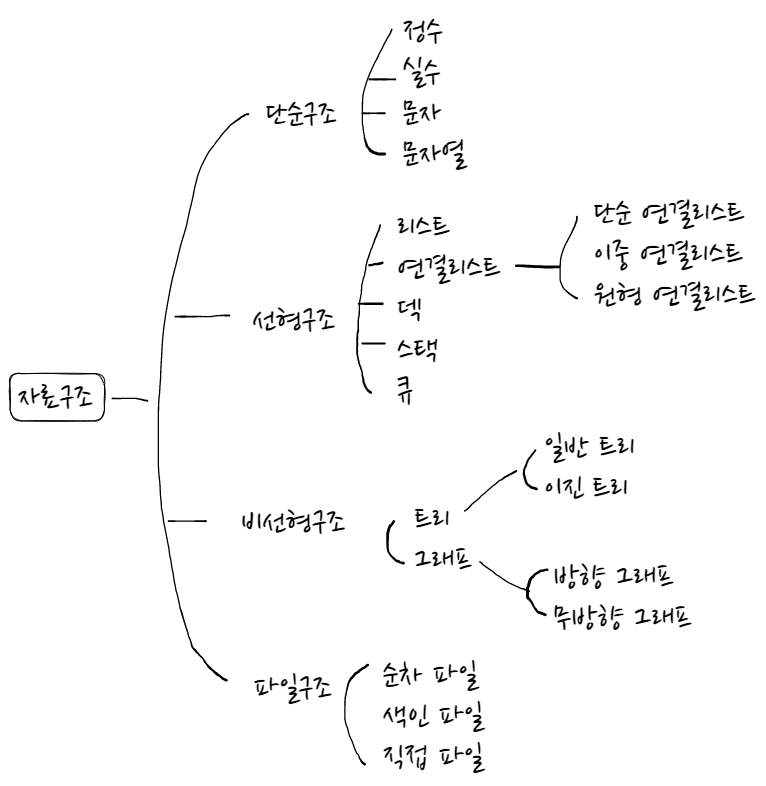 자료구조
단순구조
정수
실수
문자
문자열
선형구조
리스트
연결리스트
단순 연결리스트
이중 연결리스트
원형 연결리스트
덱
스택
큐
비선형구조
트리
일반 트리
이진 트리
그래프
방향 그래프
무방향 그래프
파일구조
순차 파일
색인 파일
직접 파일